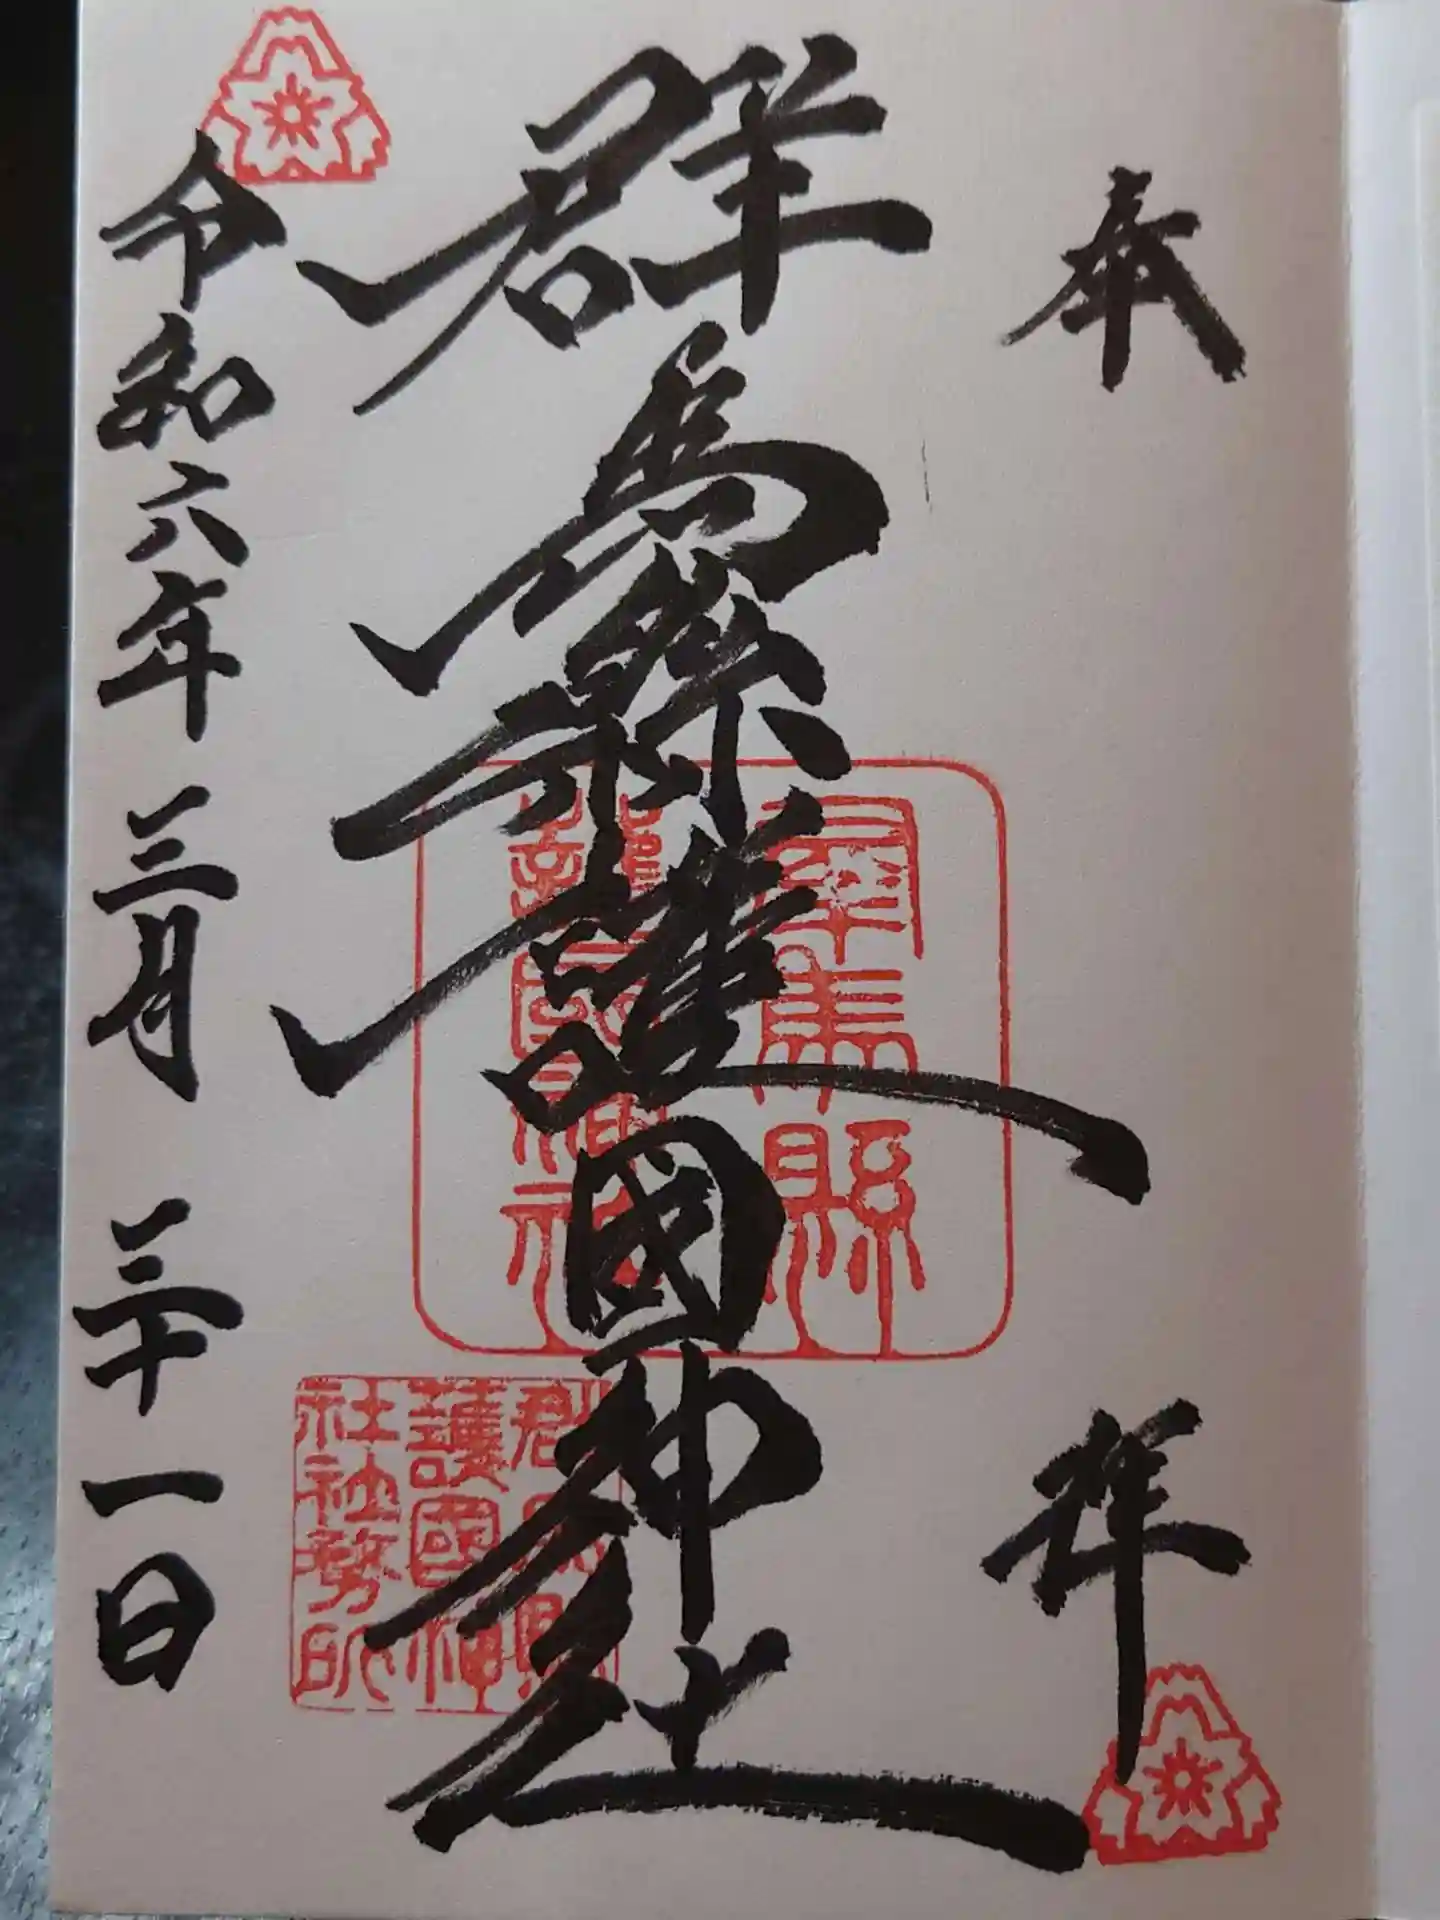 奉
拝
群馬縣護國神社
群馬縣
護國神社
群馬縣
護國神
社社務所
令和六年 三月 三十一日